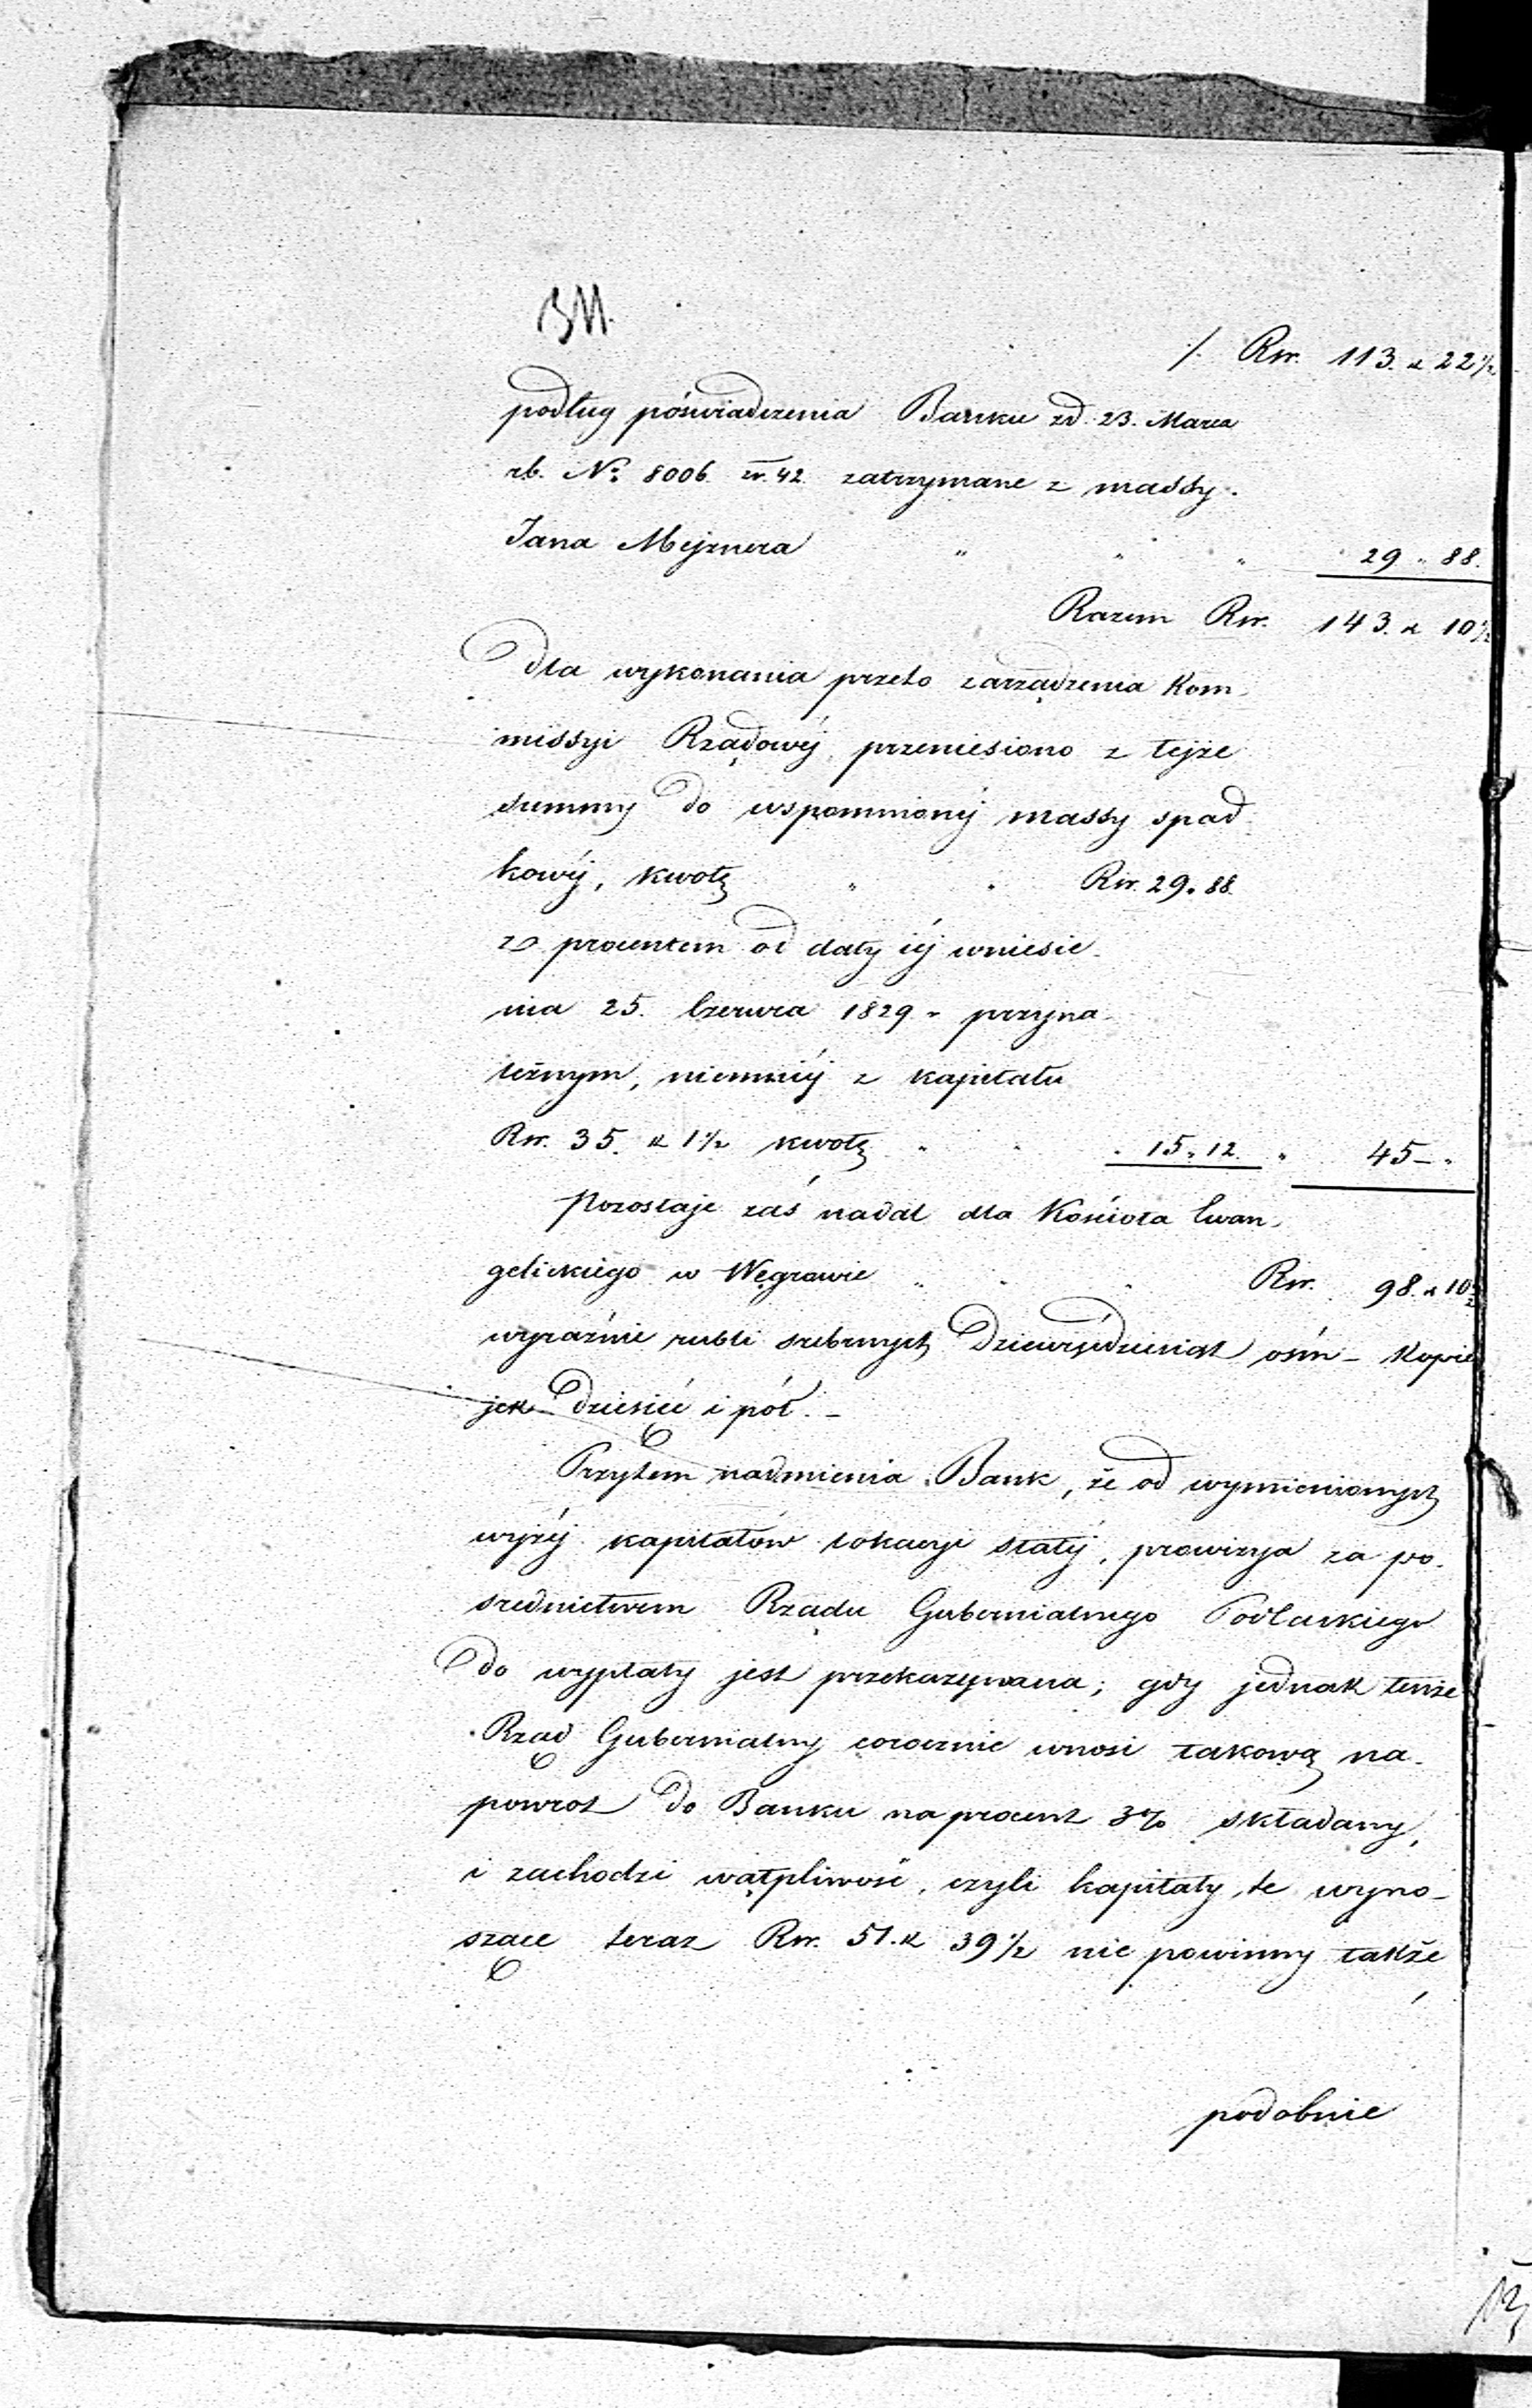 ./. Rsr. 113. k 22½
podług poświadczenia Banku zd. 23. Marca
rb. No 8006 zr. 42. zatrzymane z massy
Jana Mejznera " " " 29 " 88.
Razem Rsr. 143. k 10½
Dla wykonania przeto zarządzenia Kom-
missyi Rządowéj, przeniesiono z tejże
summy do wspomnionéj massy spad-
kowéj, kwotę " " Rsr. 29. 88.
z procentem od daty iéj wniesie-
nia 25. Czerwca 1829 r przyna-
leżnym, niemniéj z kapitału
Rsr. 35. k 1½ kwotę " " " 15. 12. " 45 – "
Pozostaje zaś nadal dla Kościoła Ewan-
gelickiego w Węgrowie " " " Rsr. 98. k 10½
wyraźnie rubli srebrnych Dziewięćdziesiąt ośm – Kopie
jek dziesięć i pół. –
Przytem nadmienia Bank, że od wymienionych
wyżéj kapitałów lokacyi stałéj, prowizya za po-
srednictwem Rządu Gubernialnego Podlaskiego
do wypłaty jest przekazywana; gdy jednak tenże
Rząd Gubernialny corocznie wnosi takową na-
powrot do Banku na procent 3% składany,
i zachodzi wątpliwość, czyli kapitały te wyno-
szące teraz Rsr. 51. k 39½ nie powinny także
podobnie